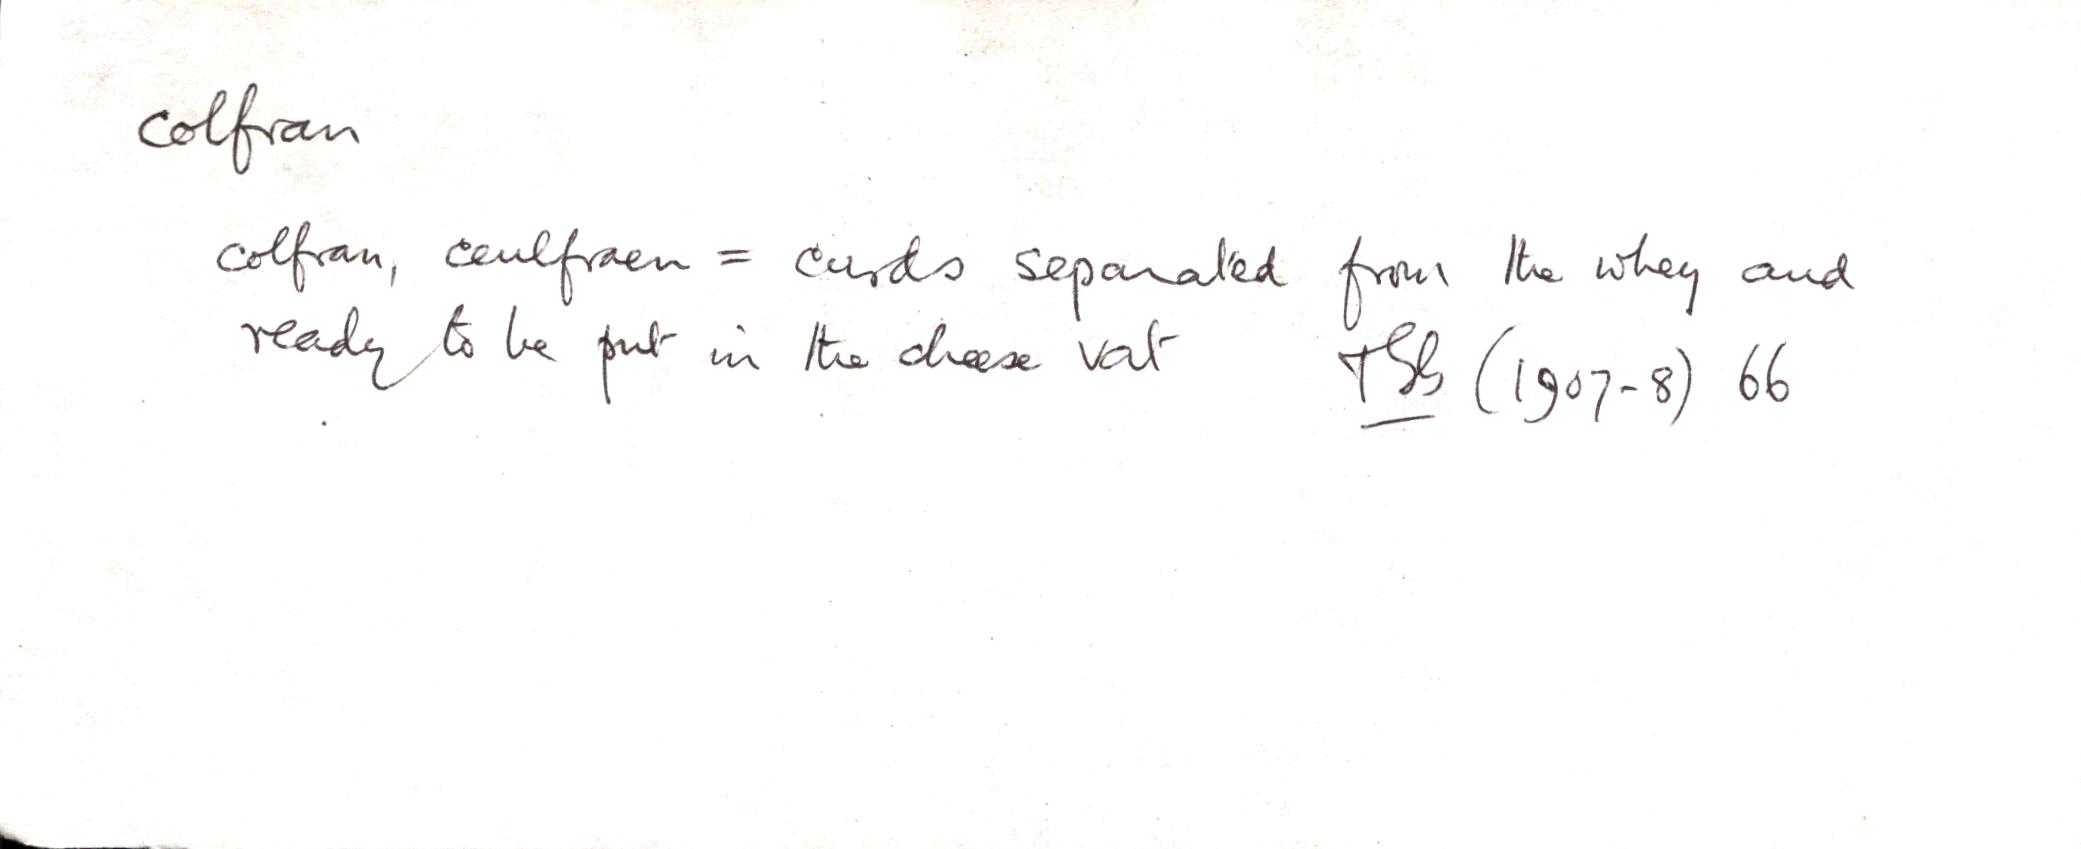 colfran
colfran, ceulfraen = curds separated from the whey and
ready to be put in the cheese vat (1907-8) 66